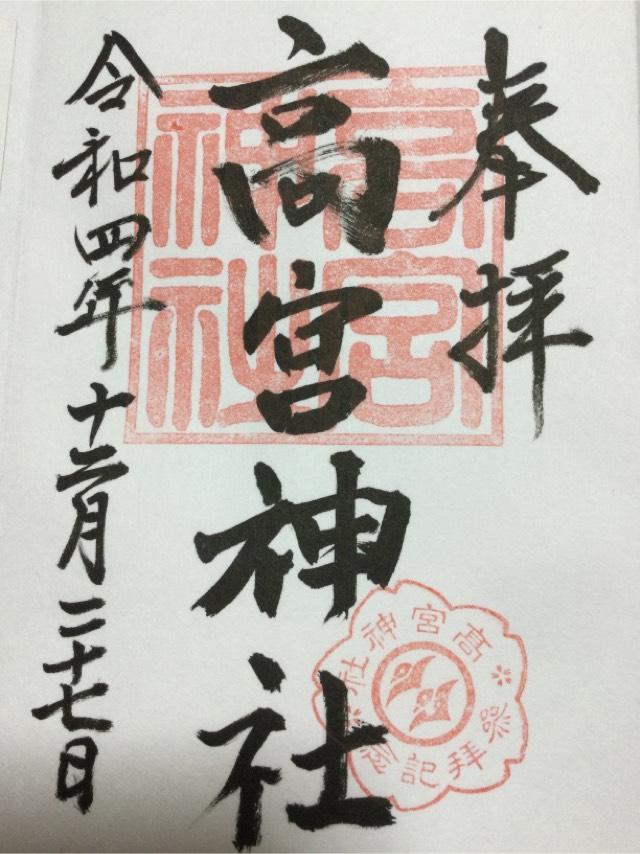 奉拝
高宮神社
令和四年十二月二十七日
高宮神社
高宮神社
参拝記念